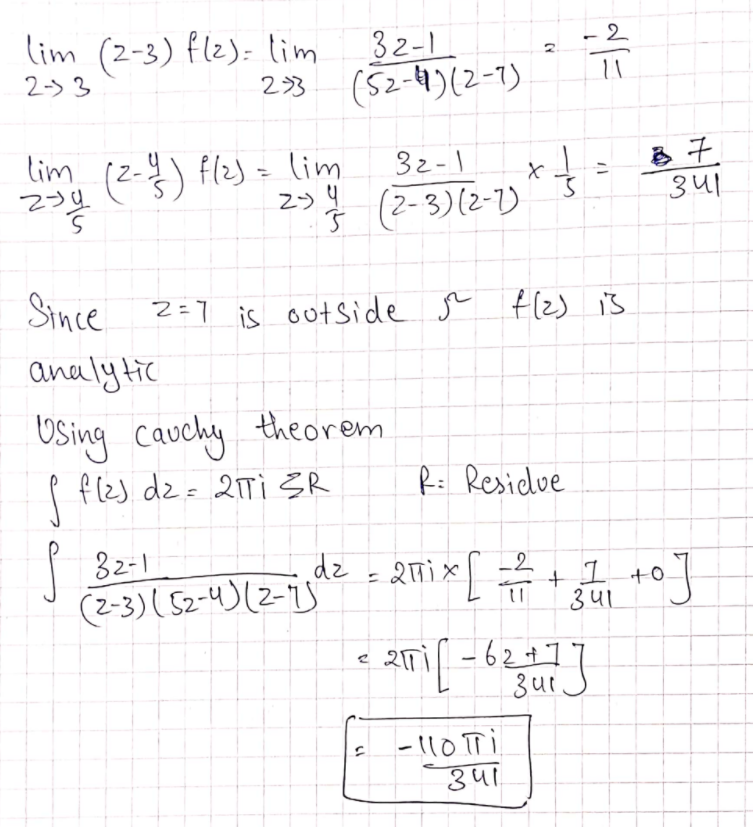 lim (z-3) f(z) = lim 3z-1 / (5z-4)(z-7) = -2/11
z→3 z→3
lim (z-4/5) f(z) = lim 3z-1 / (z-3)(z-7) × 1/5 = 7/341
z→4/5 z→4/5
Since z=7 is outside Ω f(z) is
analytic
Using cauchy theorem
∫ f(z) dz = 2πi ΣR R: Residue
∫ 3z-1 / (z-3)(5z-4)(z-7) dz = 2πi × [ -2/11 + 7/341 + 0 ]
= 2πi [ -62+7 / 341 ]
= -110πi / 341